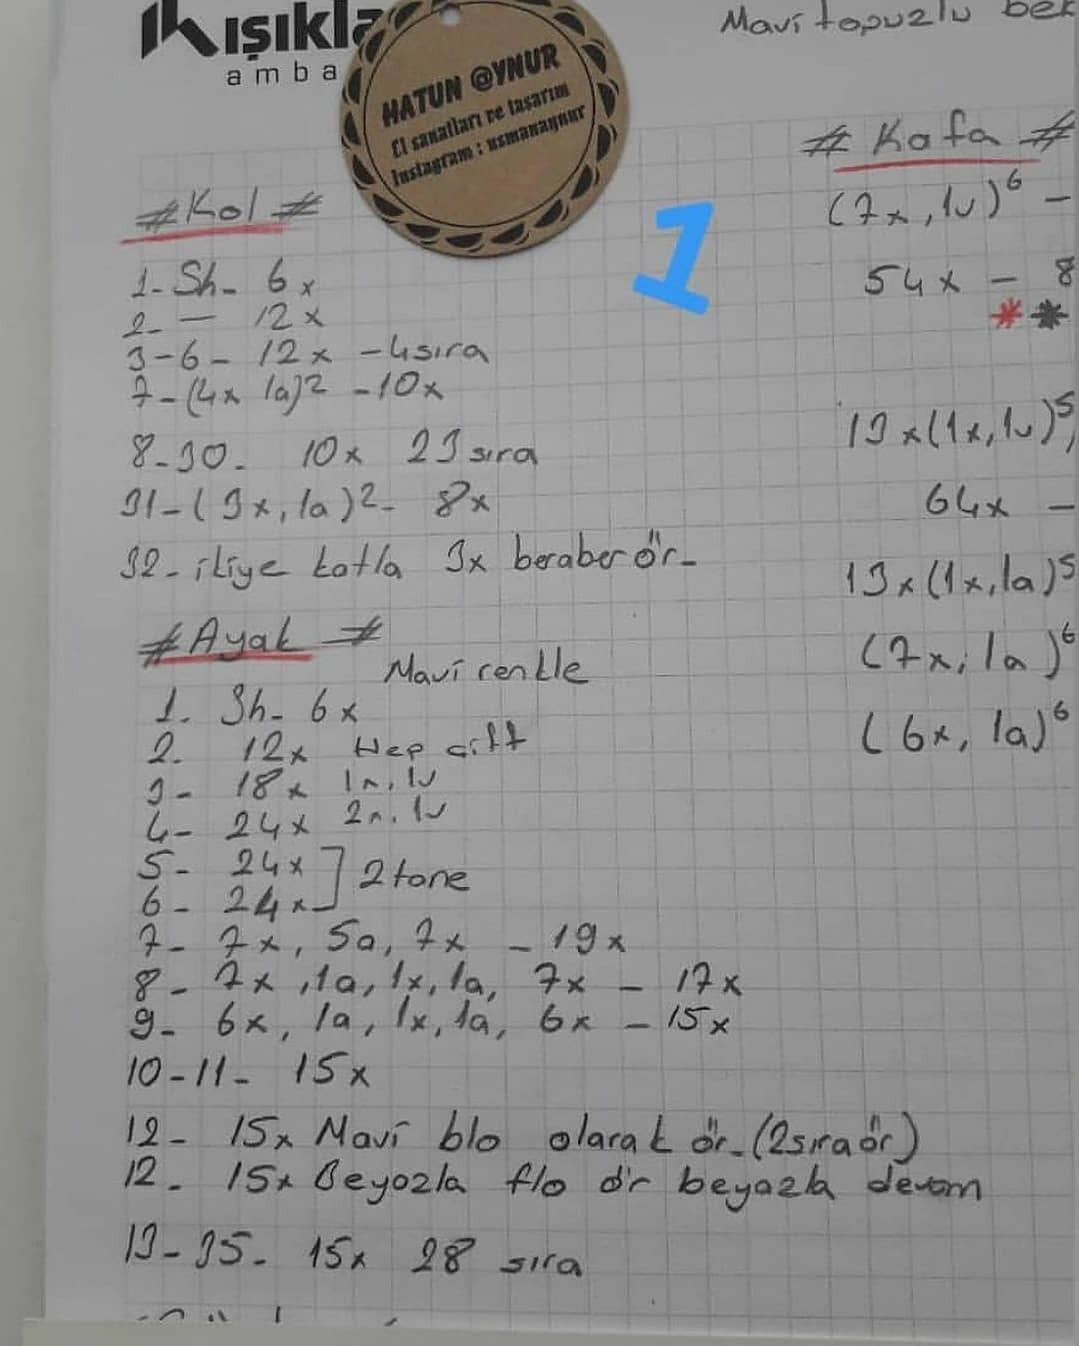 ışıkla
amba
HATUN @YNUR
El sanatları ve tasarım
Instagram : usmanaynur
1
# Kol #
1- Sh- 6x
2- — 12x
3-6- 12x -4sıra
7-(4x 1a)2 -10x
8-30- 10x 23 sıra
31-(3x,1a)2- 8x
32- ikiye katla 3x beraber ör-
# Ayak #
Mavi renkle
1. Sh- 6x
2. 12x Hep çift
3- 18x 1x,1v
4- 24x 2x,1v
5- 24x
6- 24x
2 tane
7- 7x, 5a, 7x - 19x
8- 7x ,1a, 1x, 1a, 7x - 17x
9- 6x, 1a, 1x, 1a, 6x - 15x
10-11- 15x
12- 15x Mavi blo olarak ör-(2sıra ör)
12- 15x Beyazla flo ör beyazla devam
13-35- 15x 28 sıra
Mavi topuzlu beb
# Kafa #
(7x,1v)6 -
54x - 8
**
13x(1x,1v)5,
64x -
13x(1x,1a)5
(7x,1a)6
(6x,1a)6